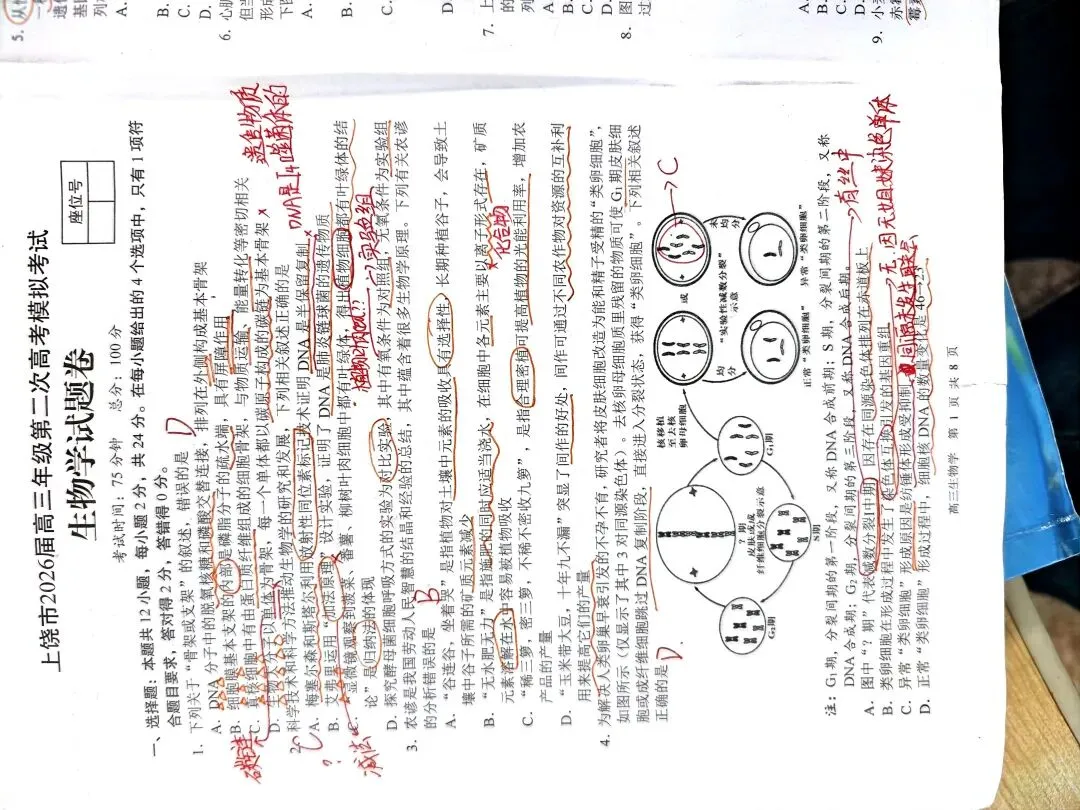 上饶市2026届高三年级第二次高考模拟考试
生物学试题卷
座位号
考试时间：75分钟 总分：100分
一、选择题：本题共12小题，每小题2分，共24分。在每小题给出的4个选项中，只有1项符
合题目要求，答对得2分，答错得0分。
1. 下列关于“骨架或支架”的叙述，错误的是 D
A. DNA分子中的脱氧核糖和磷酸交替连接，排列在外侧构成基本骨架
B. 细胞膜基本支架的内部是磷脂分子的疏水端，具有屏障作用
C. 真核细胞中有由蛋白质纤维组成的细胞骨架，与物质运输、能量转化等密切相关
D. 生物大分子以单体为骨架，每一个单体都以碳原子构成的碳链为基本骨架 ×
碳链
2. 科学技术和科学方法推动生物学的研究和发展，下列相关叙述正确的是
C
A. 梅塞尔森和斯塔尔利用放射性同位素标记技术证明DNA是半保留复制
B. 艾弗里运用“加法原理”设计实验，证明了DNA是肺炎链球菌的遗传物质
DNA是T4噬菌体的
遗传物质
?
减法
C. 显微镜观察到菠菜、番薯、柳树叶肉细胞中都有叶绿体，得出植物细胞都有叶绿体的结
论”是归纳法的体现
D. 探究酵母菌细胞呼吸方式的实验为对比实验，其中有氧条件为对照组，无氧条件为实验组
→实验组
3. 农谚是我国劳动人民智慧的结晶和经验的总结，其中蕴含着很多生物学原理。下列有关农谚
的分析错误的是 B
A. “谷连谷，坐着哭”是指植物对土壤中元素的吸收具有选择性，长期种植谷子，会导致土
壤中谷子所需的矿质元素减少
B. “无水肥无力”是指施肥的同时应适当浇水，在细胞中各元素主要以离子形式存在，矿质
元素溶解在水中容易被植物吸收
化合物
C. “稀三箩，密三箩，不稀不密收九箩”，是指合理密植可提高植物的光能利用率，增加农
产品的产量
D. “玉米带大豆，十年九不漏”突显了间作的好处，间作可通过不同农作物对资源的互补利
用来提高它们的产量
4. 为解决人类卵巢早衰引发的不孕不育，研究者将皮肤细胞改造为能和精子受精的“类卵细胞”，
如图所示（仅显示了其中3对同源染色体）。去核卵母细胞质里残留的物质可使G₁期皮肤细
胞或成纤维细胞跳过DNA复制阶段，直接进入分裂状态，获得“类卵细胞”。下列相关叙述
正确的是 D
？期
皮肤或成
纤维细胞分裂示意
G₂期
S期
G₁期
核移植
至去核
卵母细胞
均
分
或
“实验性减数分裂”
示意
未
均
分
正常“类卵细胞”
异常“类卵细胞”
→C
注：G₁期，分裂间期的第一阶段，又称DNA合成前期；S期，分裂间期的第二阶段，又称
DNA合成期；G₂期，分裂间期的第三阶段，又称DNA合成后期。
A. 图中“？期”代表减数分裂Ⅰ中期，因存在同源染色体排列在赤道板上
→有丝中
B. 类卵细胞在形成过程中发生了染色体互换引发的基因重组
→无，因无姐妹染色单体
C. 异常“类卵细胞”形成原因是纺锤体形成受抑制
D. 正常“类卵细胞”形成过程中，细胞核DNA的数量变化是46→23
高三生物学 第 1 页 共 8 页
5.
A.
B.
C.
D.
6.
A.
B.
C.
D.
7.
A.
B.
C.
D.
8.
A.
B.
C.
D.
9.